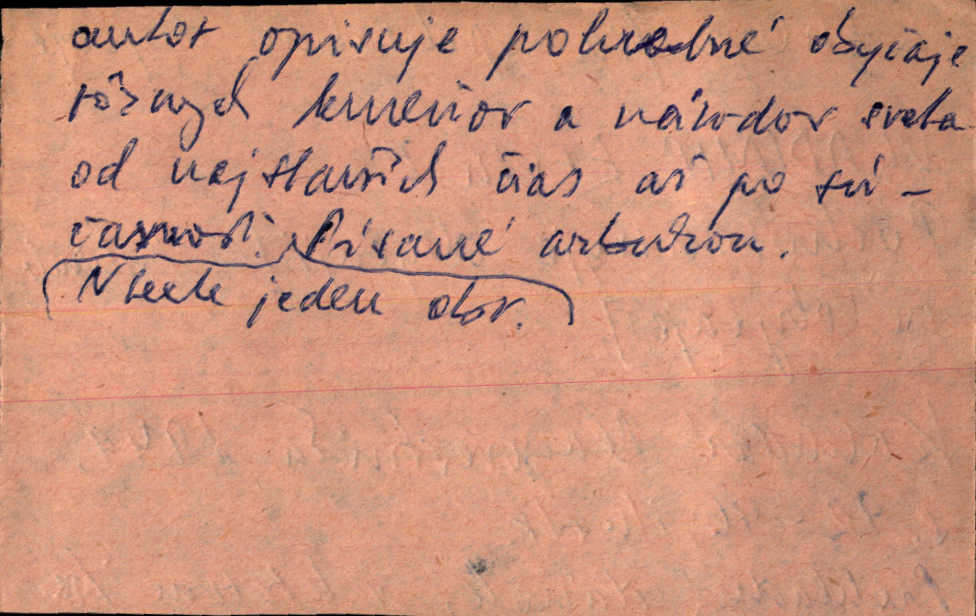 autor opisuje pohrebné obyčaje
rôznych kmeňov a národov sveta
od najstarších čias až po sú-
časnosť. Písané azbukou.
V texte jeden obr.